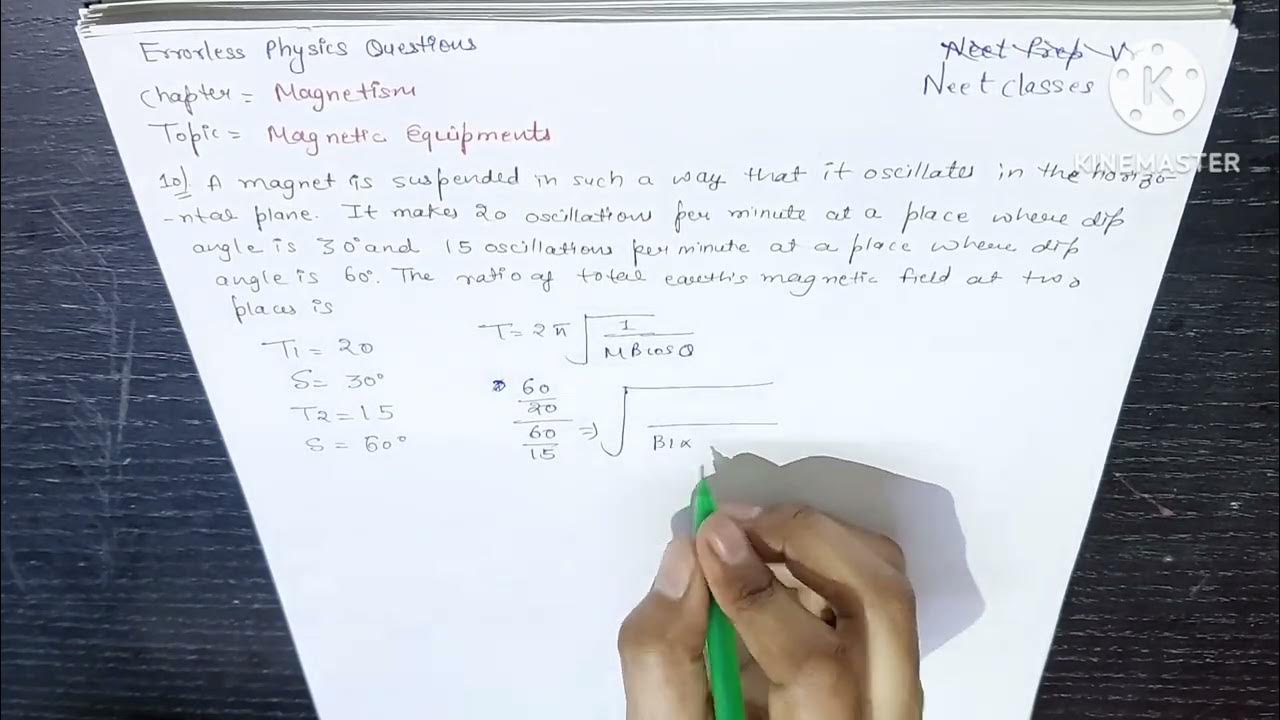 Errorless Physics Questions
Neet Prep
Neet classes
K
KINEMASTER
Chapter = Magnetism
Topic = Magnetic Equipments
10) A magnet is suspended in such a way that it oscillates in the horizo-
-ntal plane. It makes 20 oscillations per minute at a place where dip
angle is 30° and 15 oscillations per minute at a place where dip
angle is 60°. The ratio of total earth's magnetic field at two
places is
T1 = 20
S = 30°
T2 = 15
S = 60°
T = 2π √ 1 / MB cos θ
60/20 / 60/15 ⇒ √ / B1 x